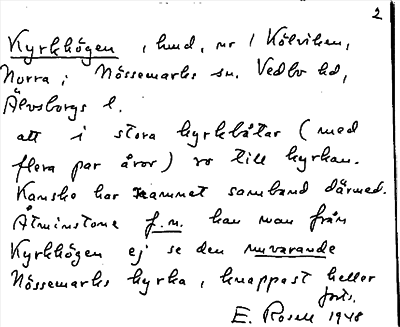 2
Kyrkhögen, hmd, nr 1 Kölviken,
Norra; Nössemarks sn. Vedbo hd,
Älvsborgs l.
att i stora kyrkbåtar (med
flera par åror) ro till kyrkan.
Kanske har namnet samband därmed.
Åtminstone f.n. kan man från
Kyrkhögen ej se den nuvarande
Nössemarks kyrka, knappast heller
forts.
E. Rosell 1948